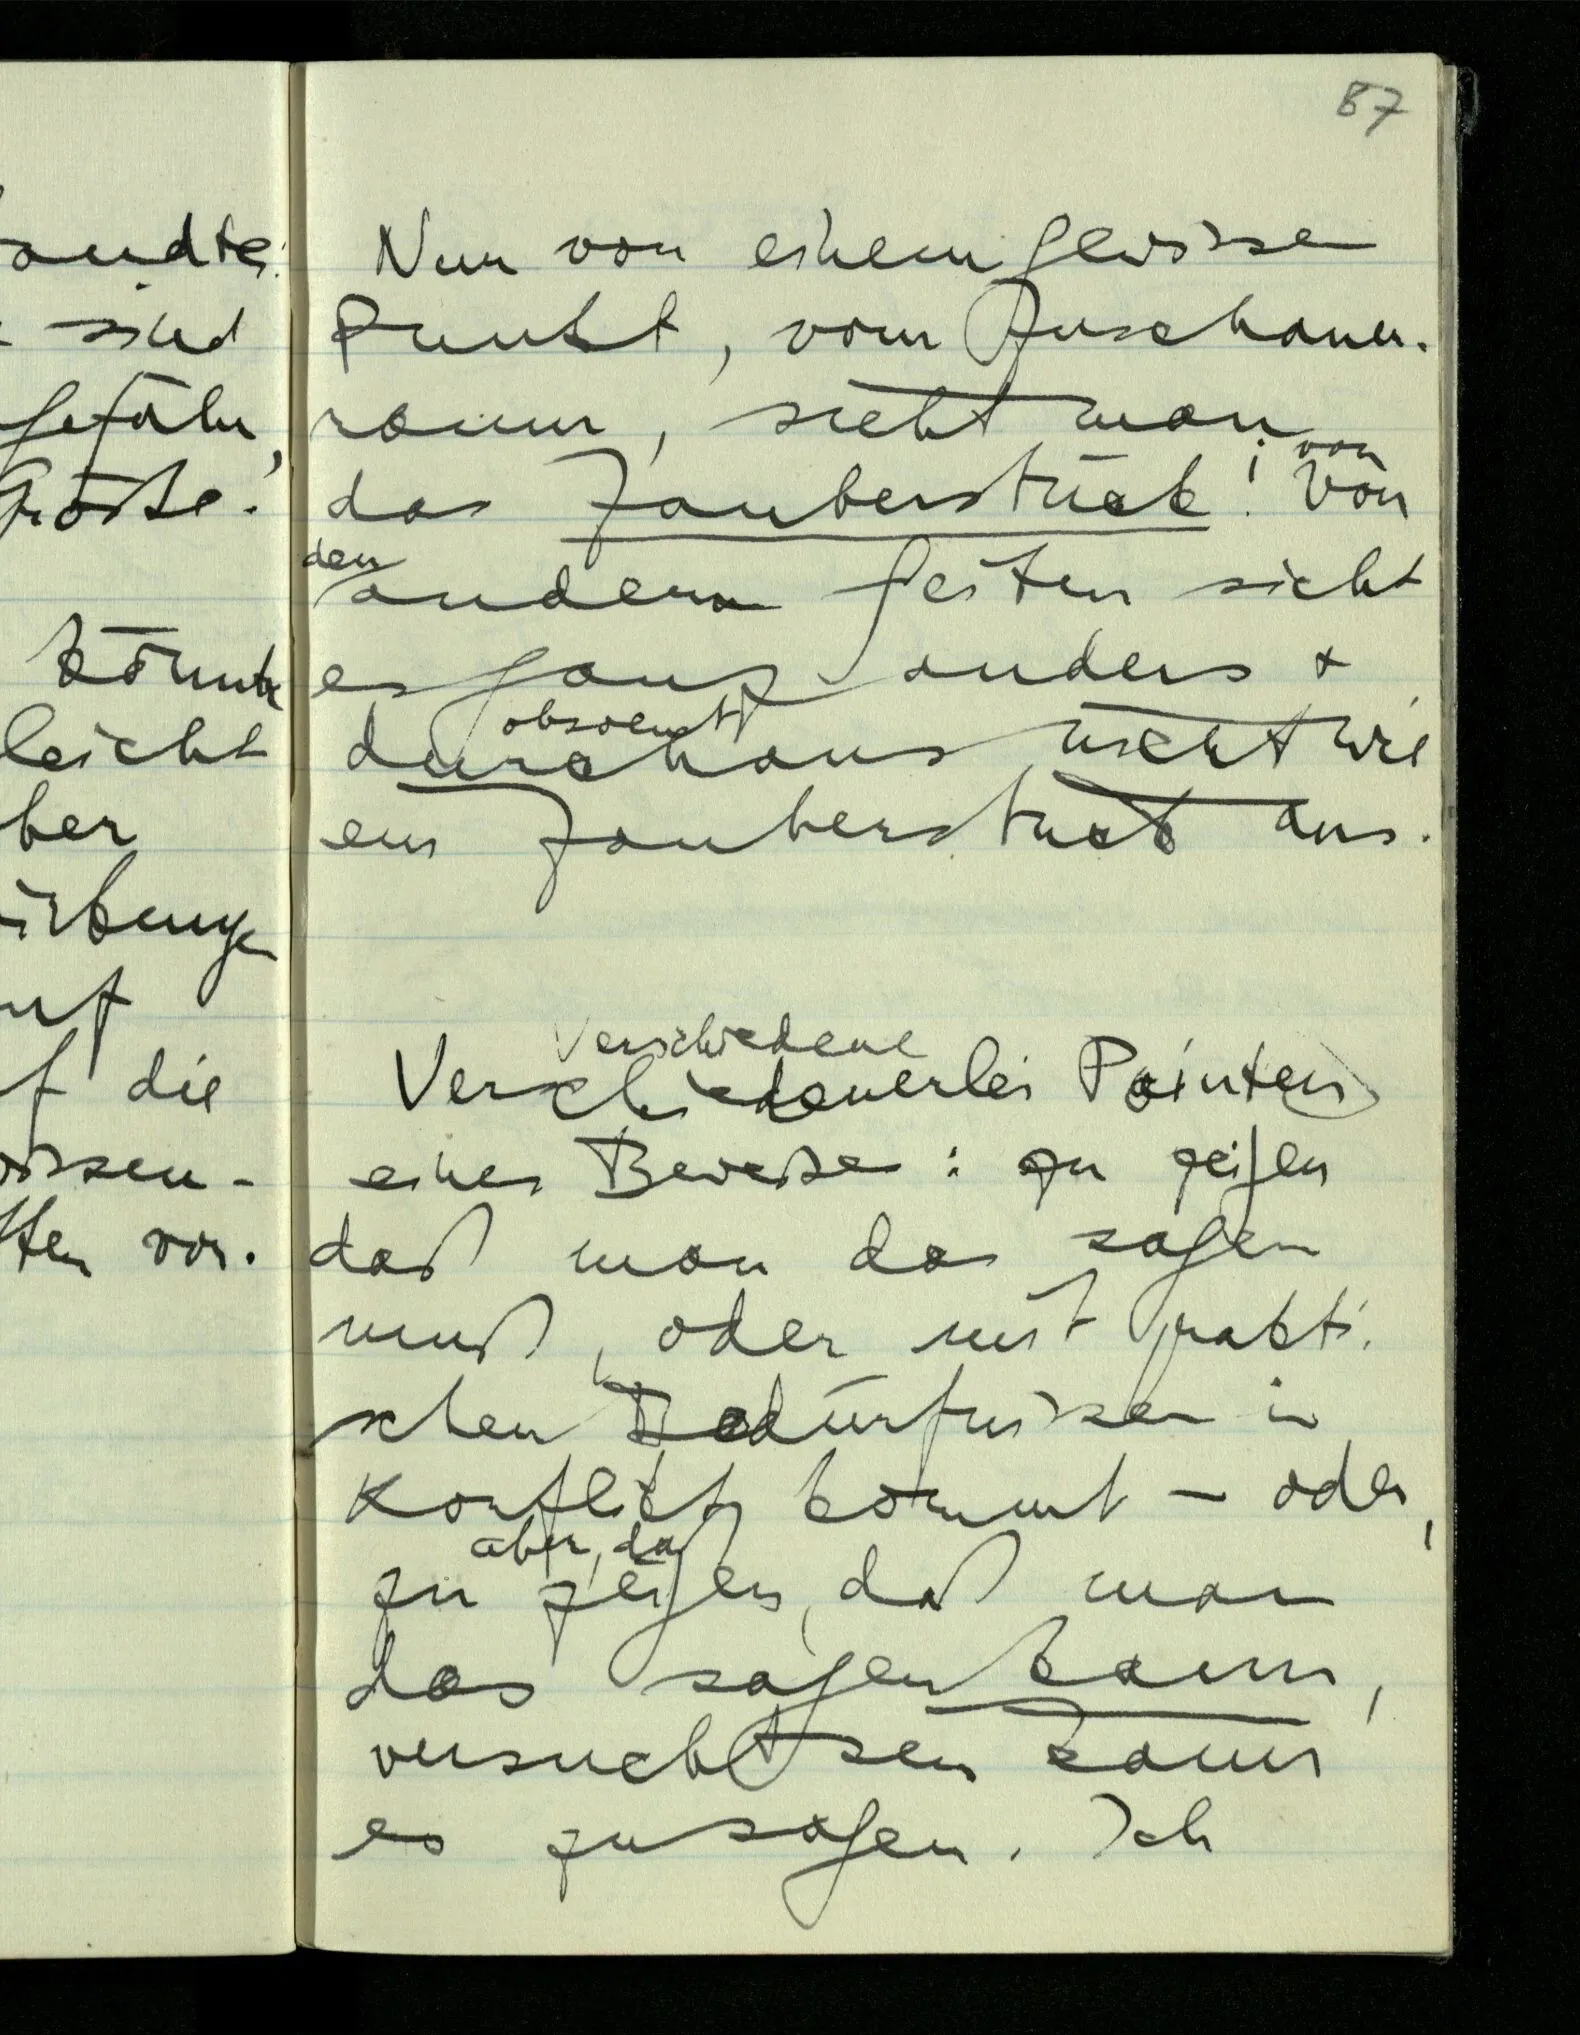 87
andte
sind
gefähr,
Größe.
könnte
leicht
ber
irkungen
uf
f die
wissen-
tten vor.
Nur von einem gewissen
Punkt, vom Zuschauer-
raum, sieht man
von
das Zauberstück! Von
den
andern Seiten sieht
es ganz anders +
obsolut
durchaus nicht wie
ein Zauberstück aus.
Verschiedene
Verschiedenerlei Pointen
eines Beweises: zu zeigen
daß man das sagen
muß, oder mit prakti-
schen Bedürfnissen in
Konflikt kommt – oder,
aber, daß
zu zeigen, daß man
das sagen kann,
versucht sein kann
es zu sagen. Ich